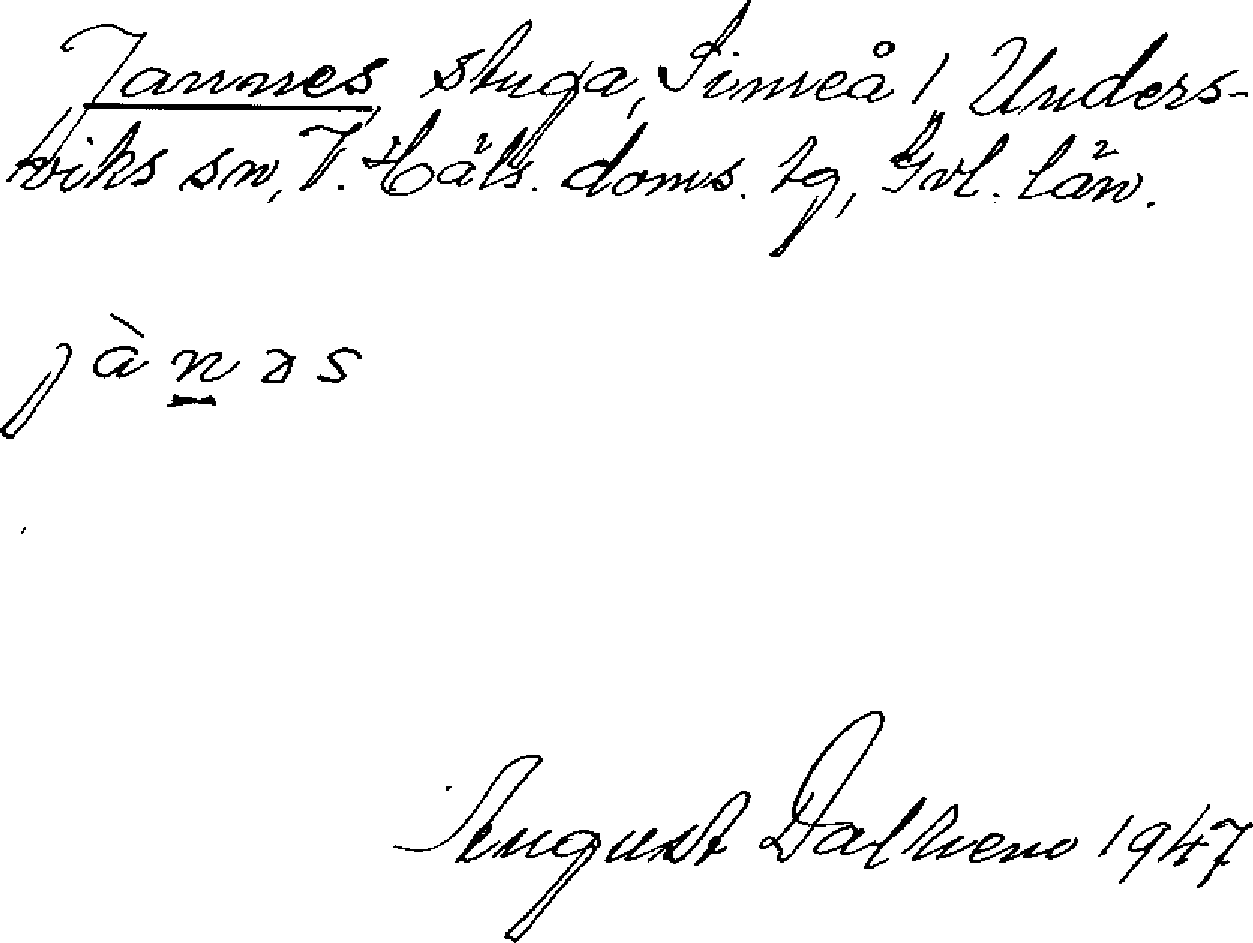 Jannes stuga, Simeå 1, Unders-
viks sn, V. Häls. doms. tg, Gvl. län.
jànəs
August Dalhem 1947